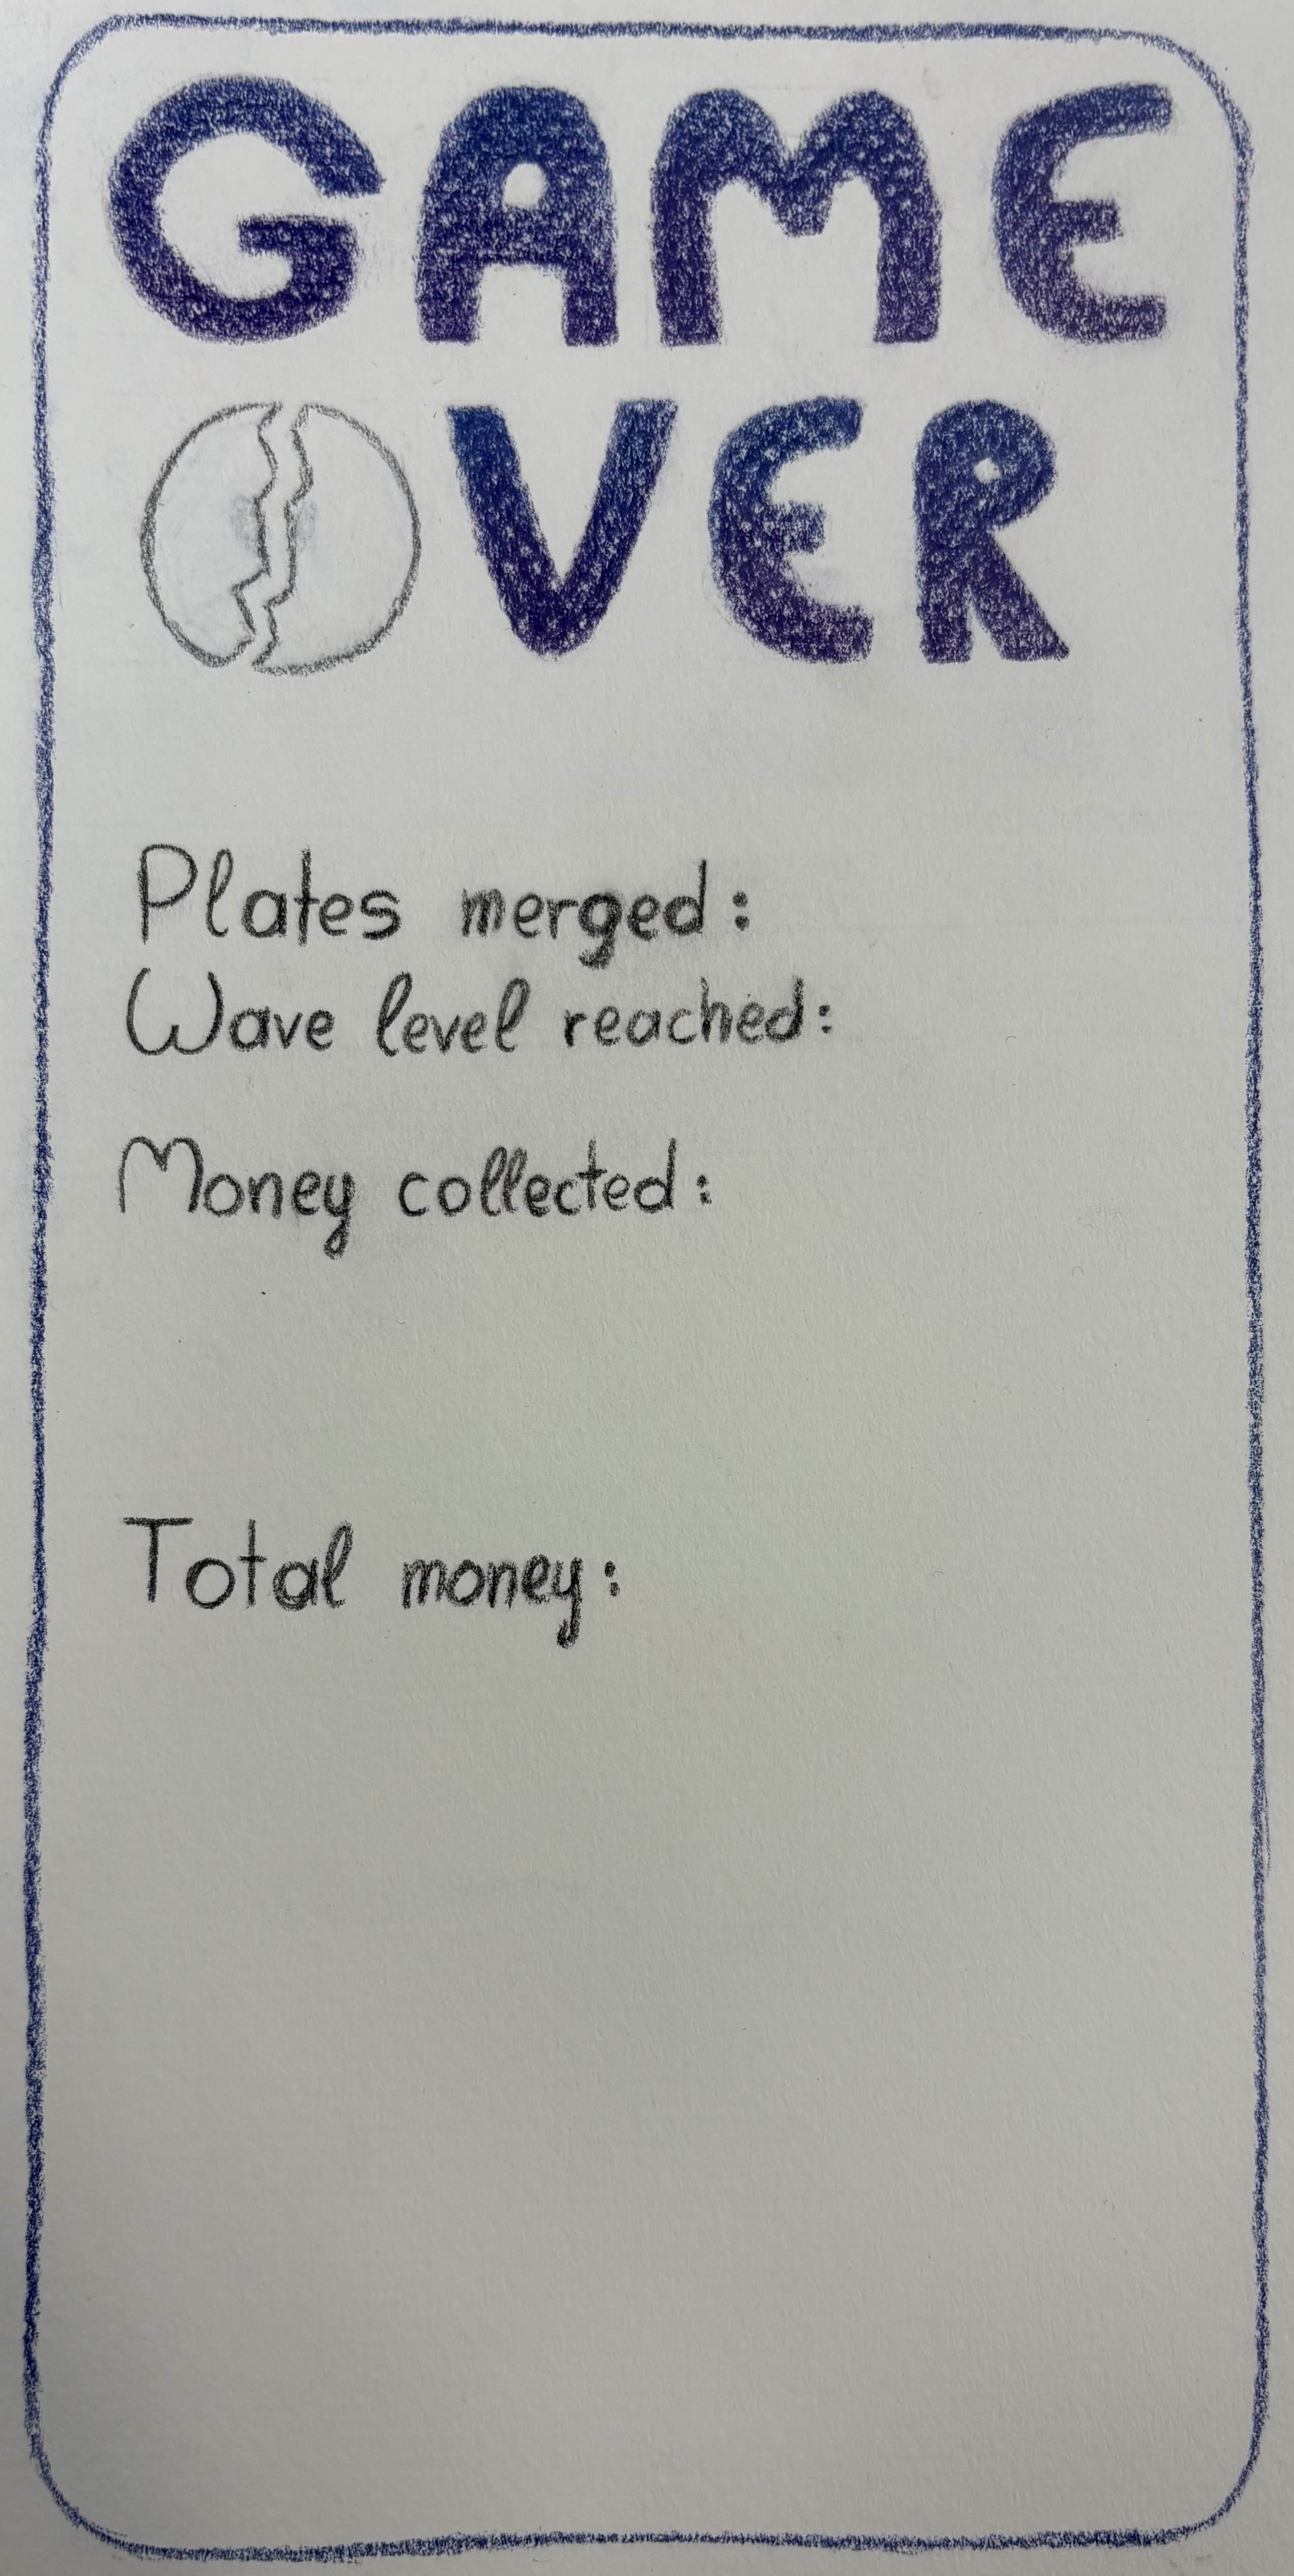 GAME
OVER
Plates merged:
Wave level reached:
Money collected:
Total money: